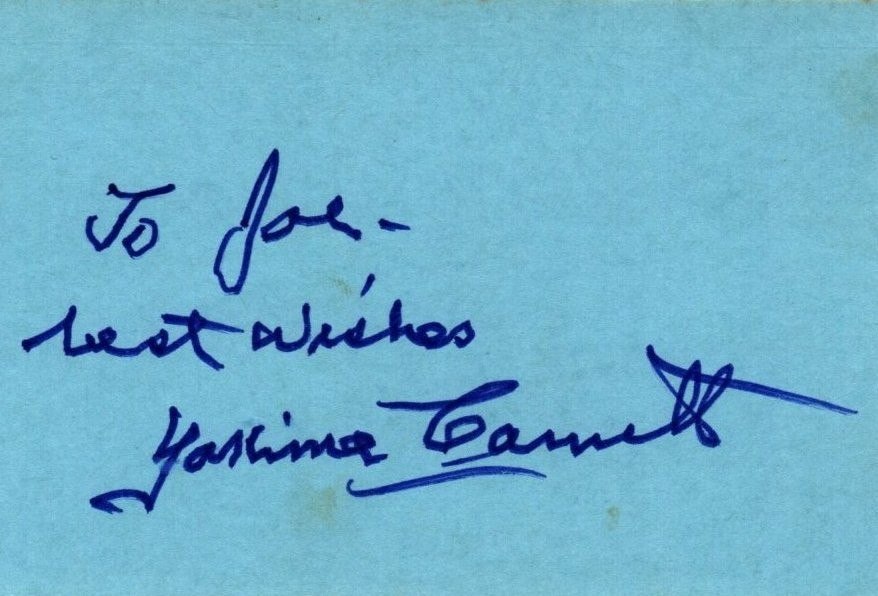 To Joe -
best wishes
Yakima Canutt